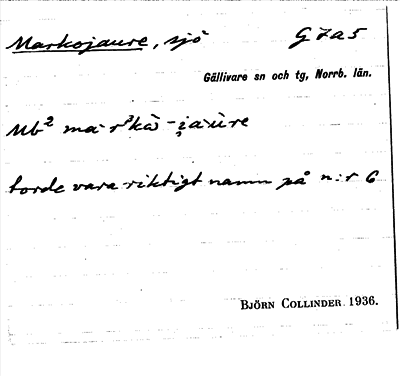 Markojaure, sjö G7a5
Gällivare sn och tg, Norrb. län.
Mb² 
torde vara riktigt namn på n:r 6
BJÖRN COLLINDER 1936.